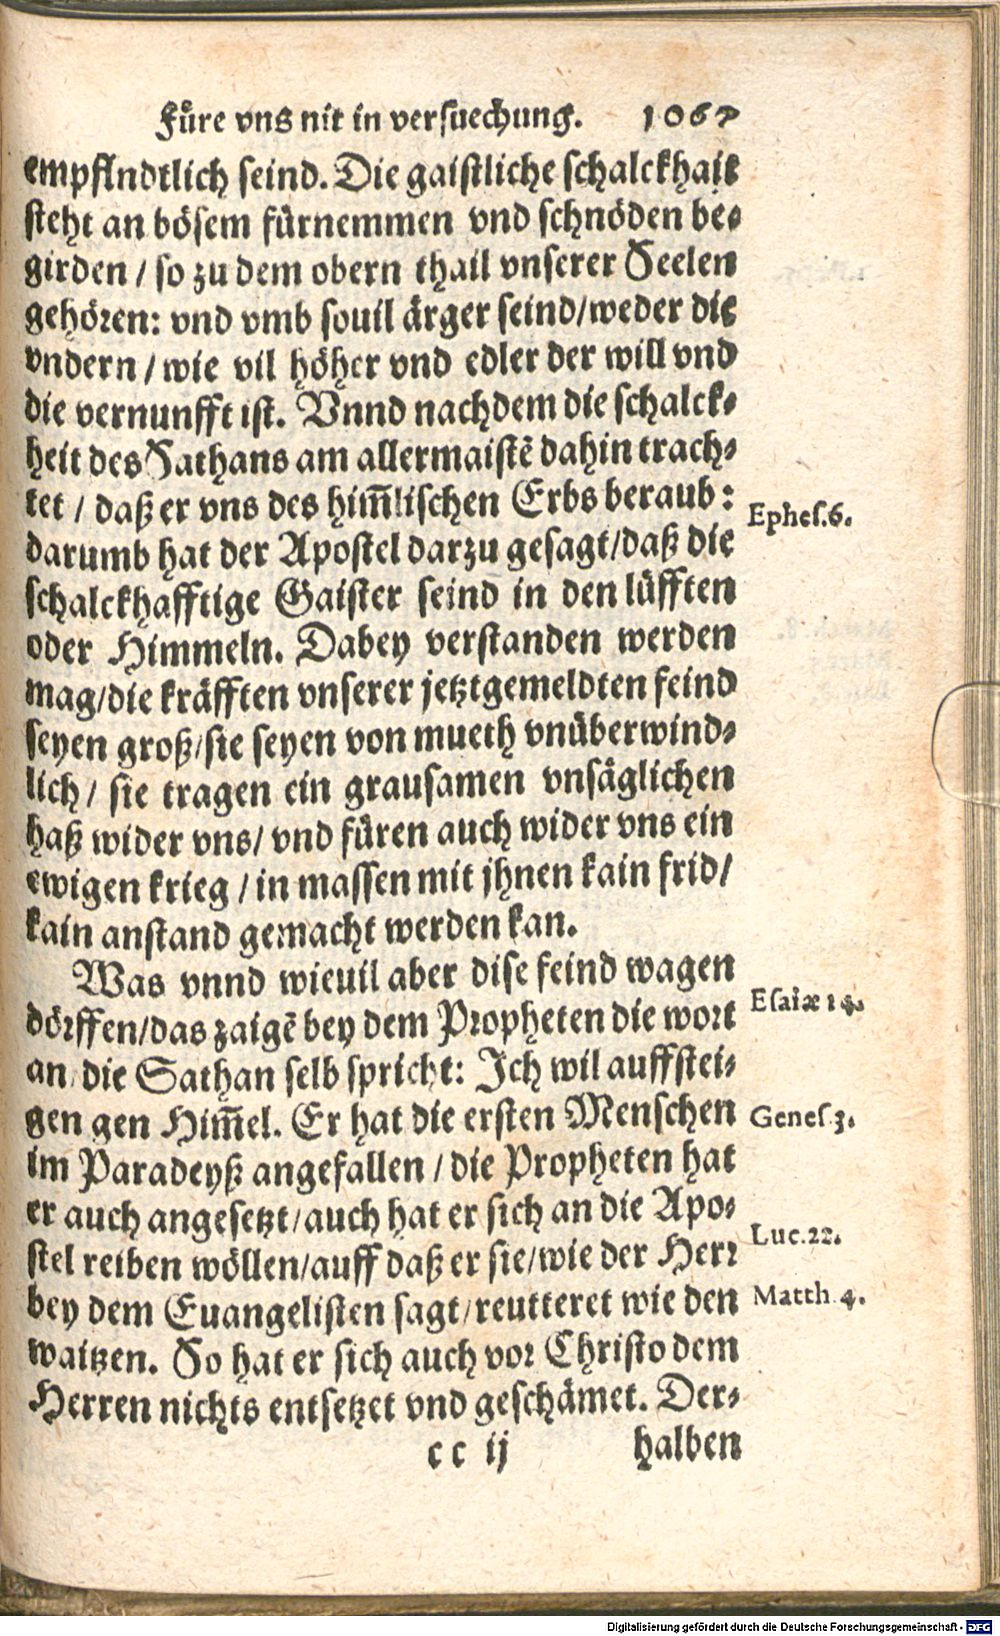 Füre vns nit in versuechung. 1067
empfindtlich seind. Die gaistliche schalckhait
steht an bösem fürnemmen vnd schnöden be⸗
girden / so zu dem obern thail vnserer Seelen
gehören: vnd vmb souil ärger seind/weder die
vndern / wie vil höher vnd edler der will vnd
die vernunfft ist. Vnnd nachdem die schalck⸗
heit des Sathans am allermaistē dahin trach⸗
tet / daß er vns des him̄lischen Erbs beraub:
Ephes.6.
darumb hat der Apostel darzu gesagt/daß die
schalckhafftige Gaister seind in den lüfften
oder Himmeln. Dabey verstanden werden
mag/die kräfften vnserer jetztgemeldten feind
seyen groß/sie seyen von mueth vnüberwind⸗
lich/ sie tragen ein grausamen vnsäglichen
haß wider vns/ vnd füren auch wider vns ein
ewigen krieg / in massen mit jhnen kain frid/
kain anstand gemacht werden kan.
Was vnnd wieuil aber dise feind wagen
Esaiæ 14.
dörffen/das zaigē bey dem Propheten die wort
an, die Sathan selb spricht: Ich wil auffstei⸗
gen gen Him̄el. Er hat die ersten Menschen
Genes.3.
im Paradeyß angefallen / die Propheten hat
er auch angesetzt/auch hat er sich an die Apo⸗
Luc.22.
stel reiben wöllen/auff daß er sie/wie der Herr
bey dem Euangelisten sagt/reutteret wie den
Matth.4.
waitzen. So hat er sich auch vor Christo dem
Herren nichts entsetzet vnd geschämet. Der⸗
cc ij halben
Digitalisierung gefördert durch die Deutsche Forschungsgemeinschaft - DFG